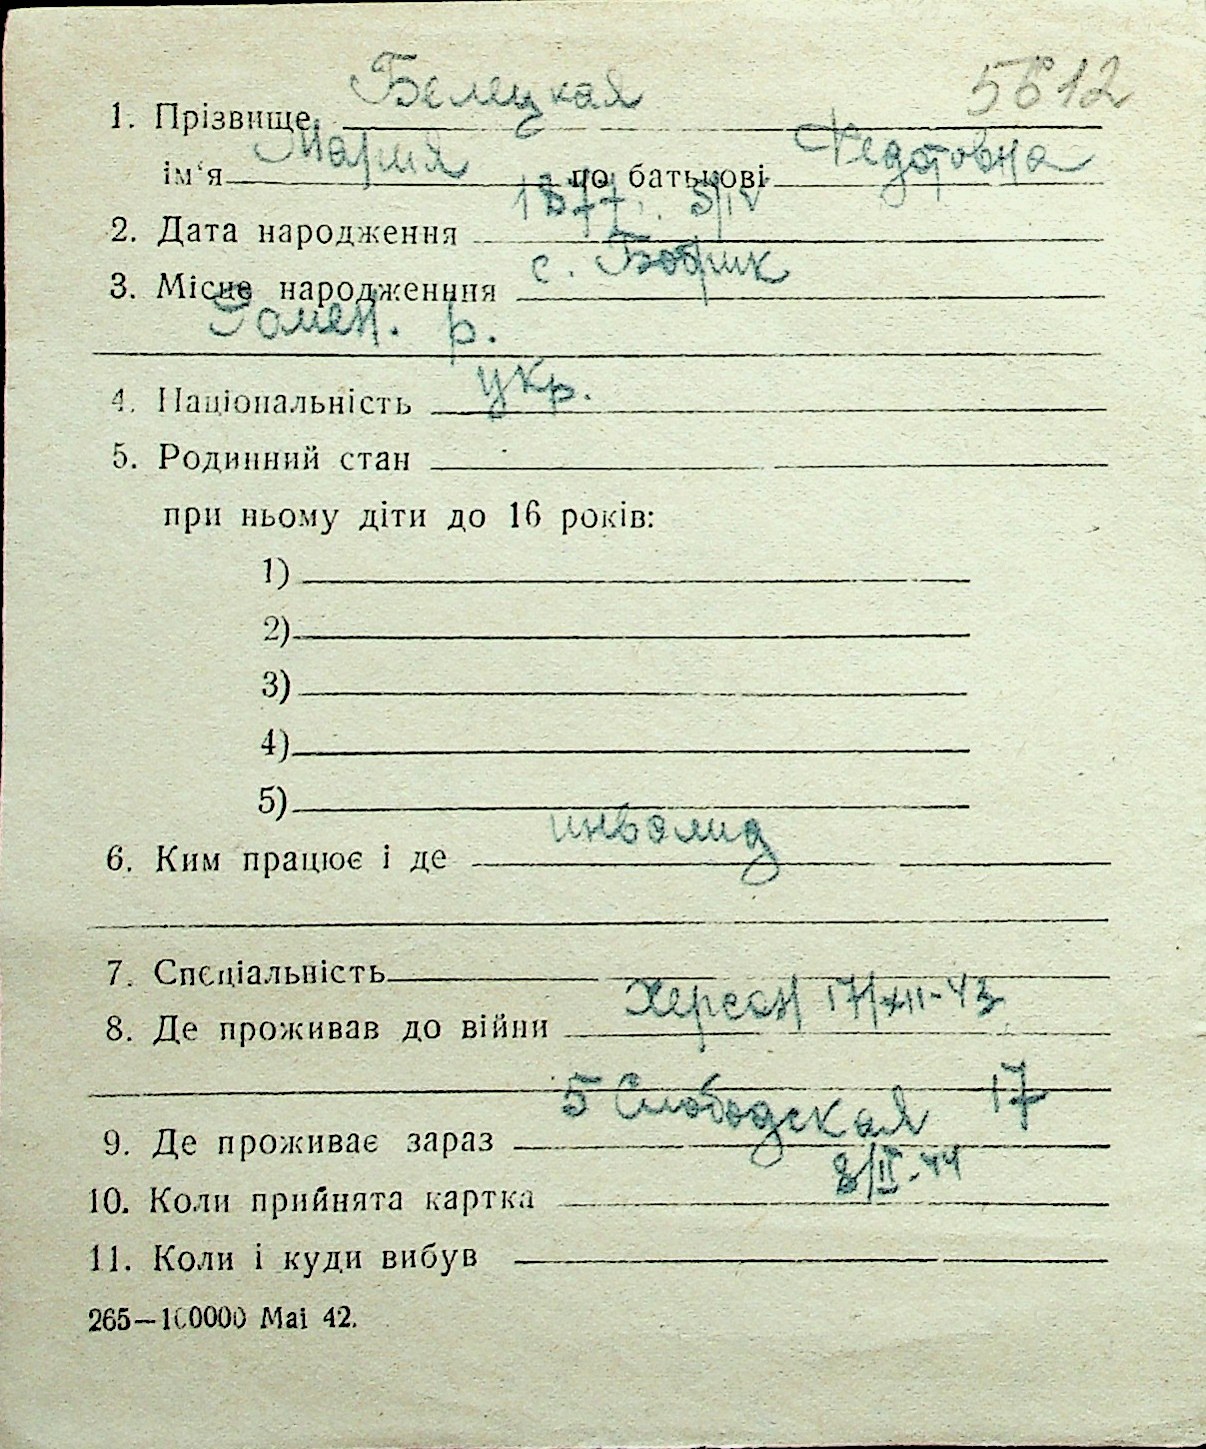 5612
1. Прізвище Белецкая
ім‘я Мария по батькові Федотовна
2. Дата народження 1877. 5/IV
3. Місце народженння с. Бобрик
Ромен. р.
4. Національність укр.
5. Родинний стан
при ньому діти до 16 років:
1)
2)
3)
4)
5)
6. Ким працює і де инвалид
7. Спєціальність
8. Де проживав до війни Херсон 17/XII-43
9. Де проживає зараз 5 Слободская 17
10. Коли прийнята картка 8/II-44
11. Коли і куди вибув
265—100000 Mai 42.